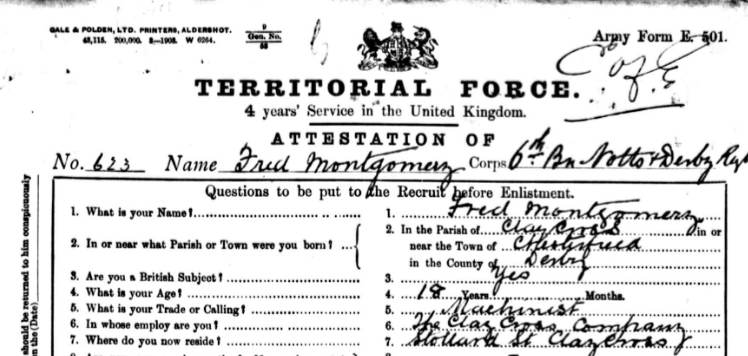 GALE & POLDEN, LTD. PRINTERS, ALDERSHOT.
48,115. 200,000. 3—1908. W 6264.
9
Gen. No.
58
Army Form E. 501.
C of E
TERRITORIAL FORCE.
4 years' Service in the United Kingdom.
ATTESTATION OF
No. 623 Name Fred Montgomery Corps 6th Bn Notts & Derby Regt
Questions to be put to the Recruit before Enlistment.
1. What is your Name?
1. Fred Montgomery
2. In or near what Parish or Town were you born?
2. In the Parish of Clay Cross in or
near the Town of Chesterfield
in the County of Derby
3. Are you a British Subject?
3. Yes
4. What is your Age?
4. 18 Years Months.
5. What is your Trade or Calling?
5. Machinist
6. In whose employ are you?
6. The Clay Cross Company
7. Where do you now reside?
7. St Clay Cross
should be returned to him conspicuously
on the (Date)